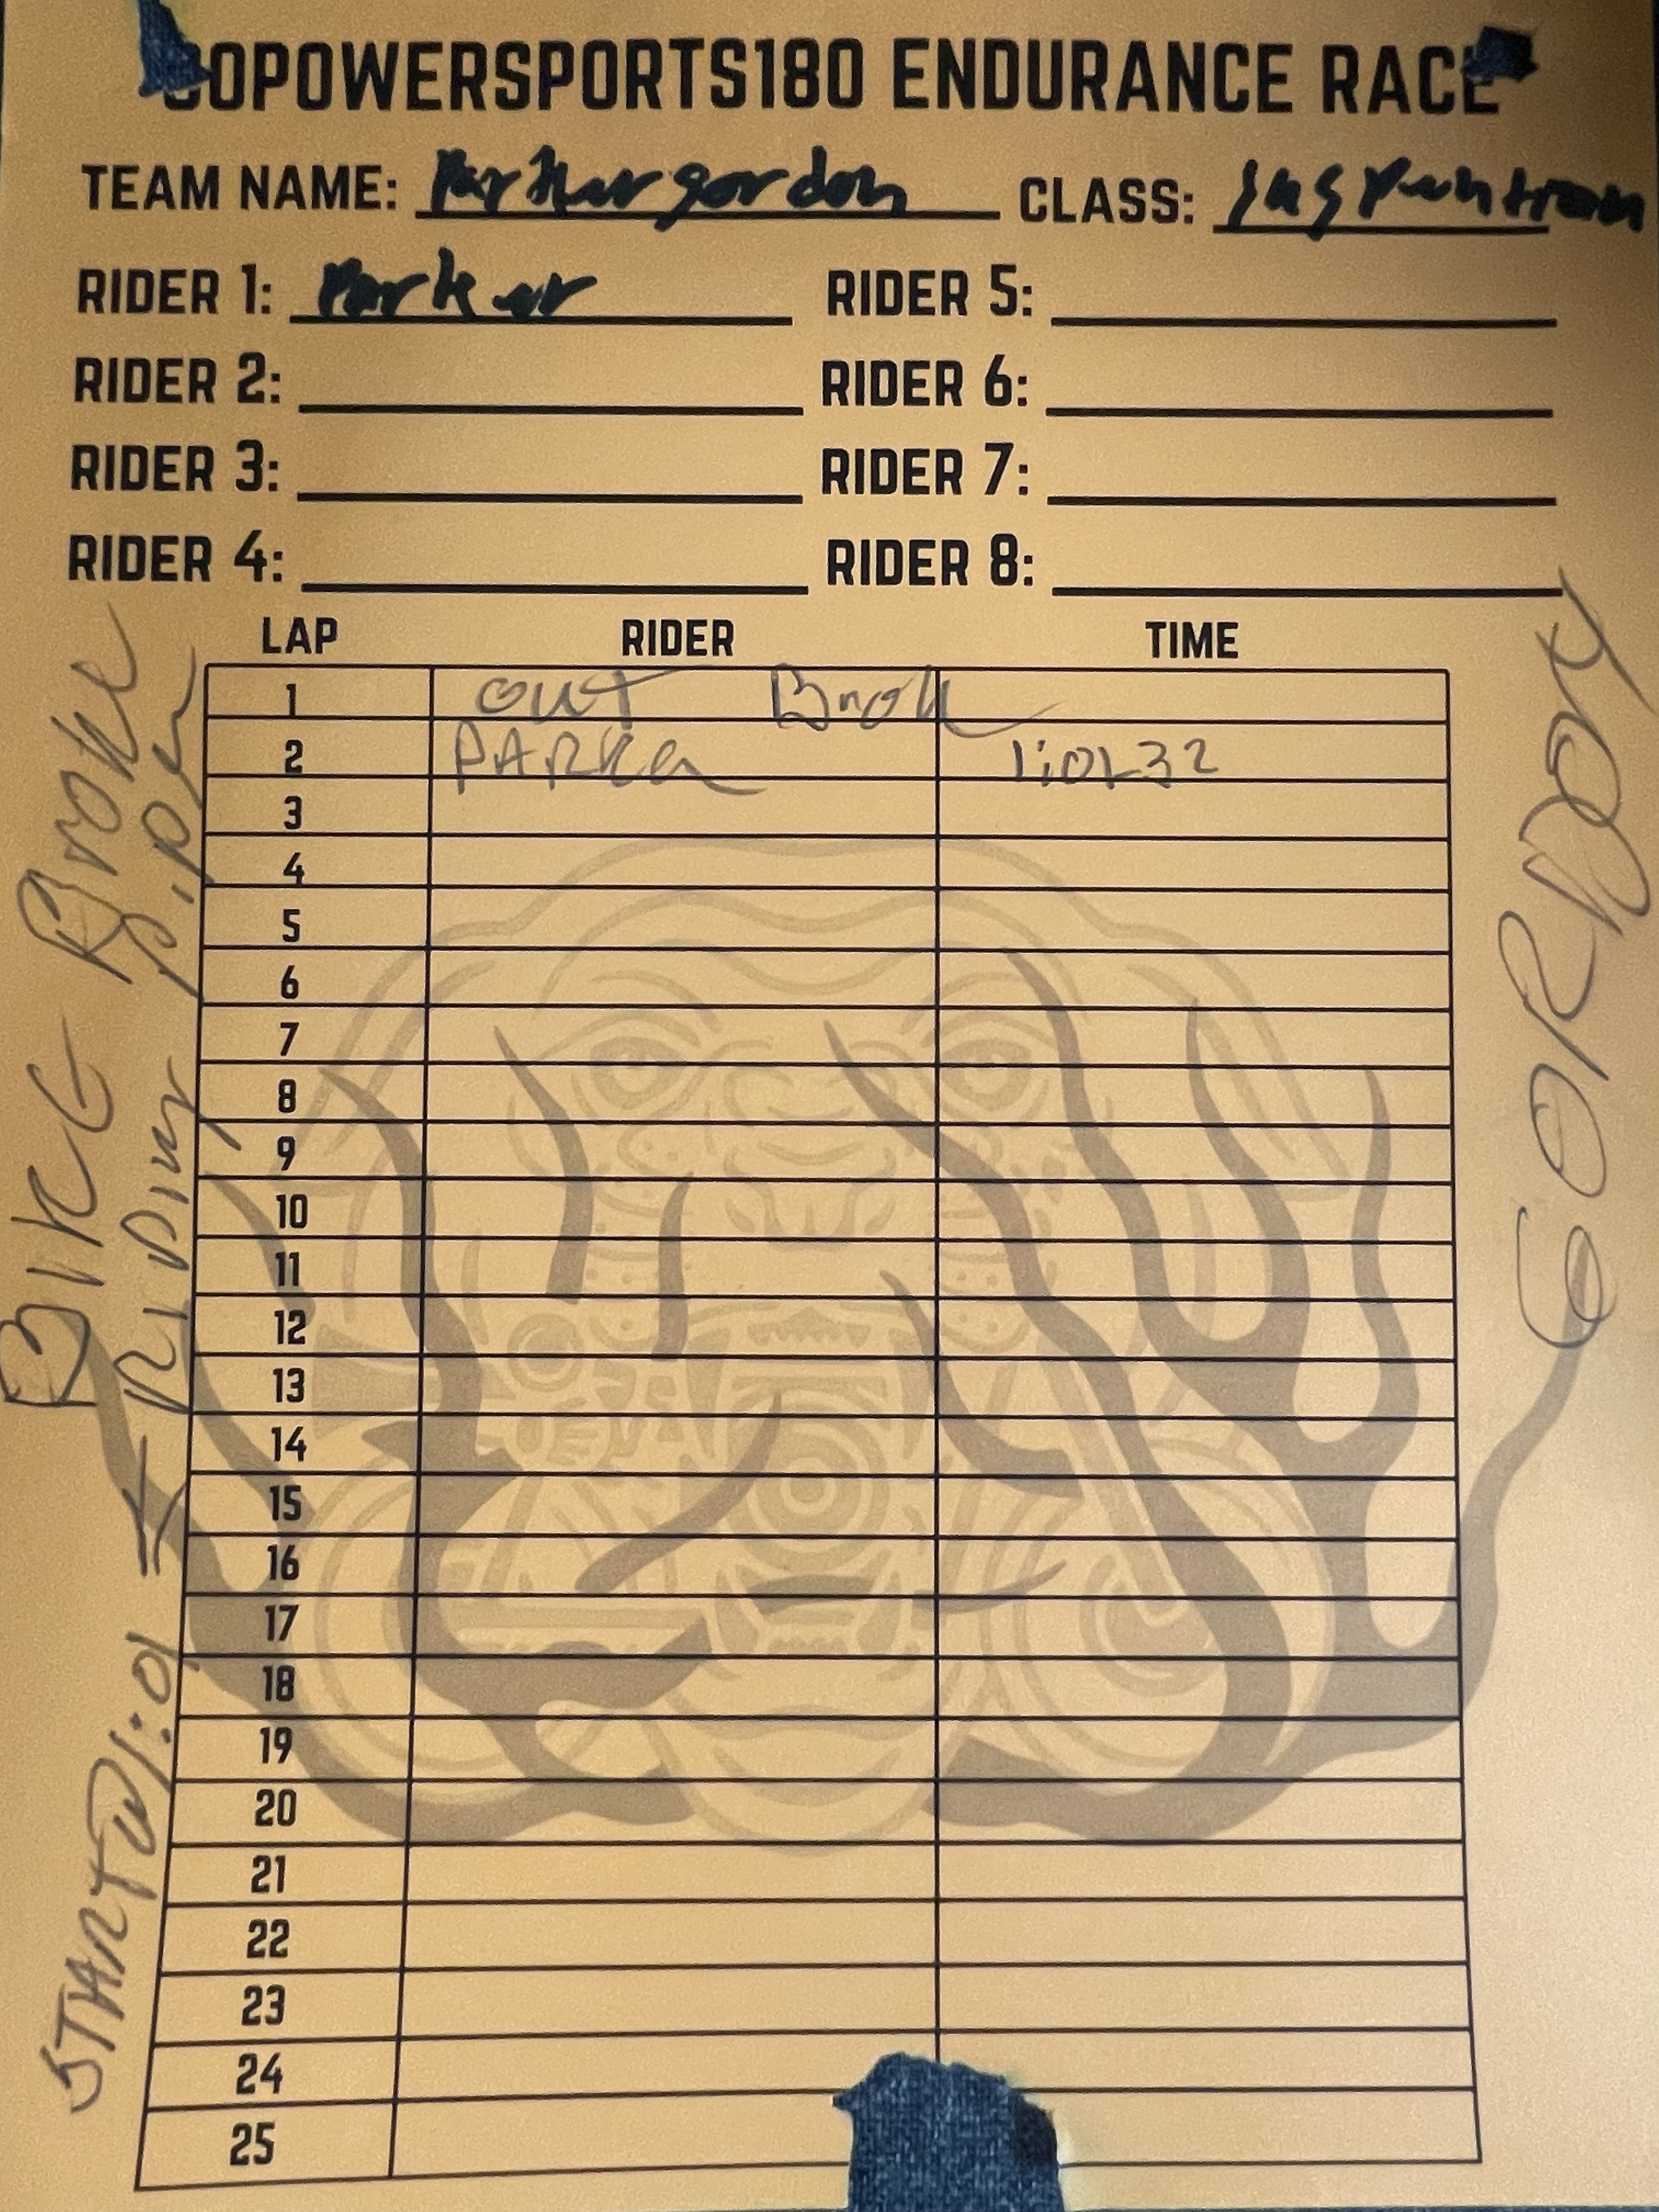 GOPOWERSPORTS180 ENDURANCE RACE
TEAM NAME: Parker gordon CLASS:
RIDER 1: Parker RIDER 5:
RIDER 2: RIDER 6:
RIDER 3: RIDER 7:
RIDER 4: RIDER 8:
LAP RIDER TIME
1 out Brok
2 PARKer
3
4
5
6
7
8
9
10
11
12
13
14
15
16
17
18
19
20
21
22
23
24
25
BIKE Broke
START W/:01 ← RiDing Piper
GORDON